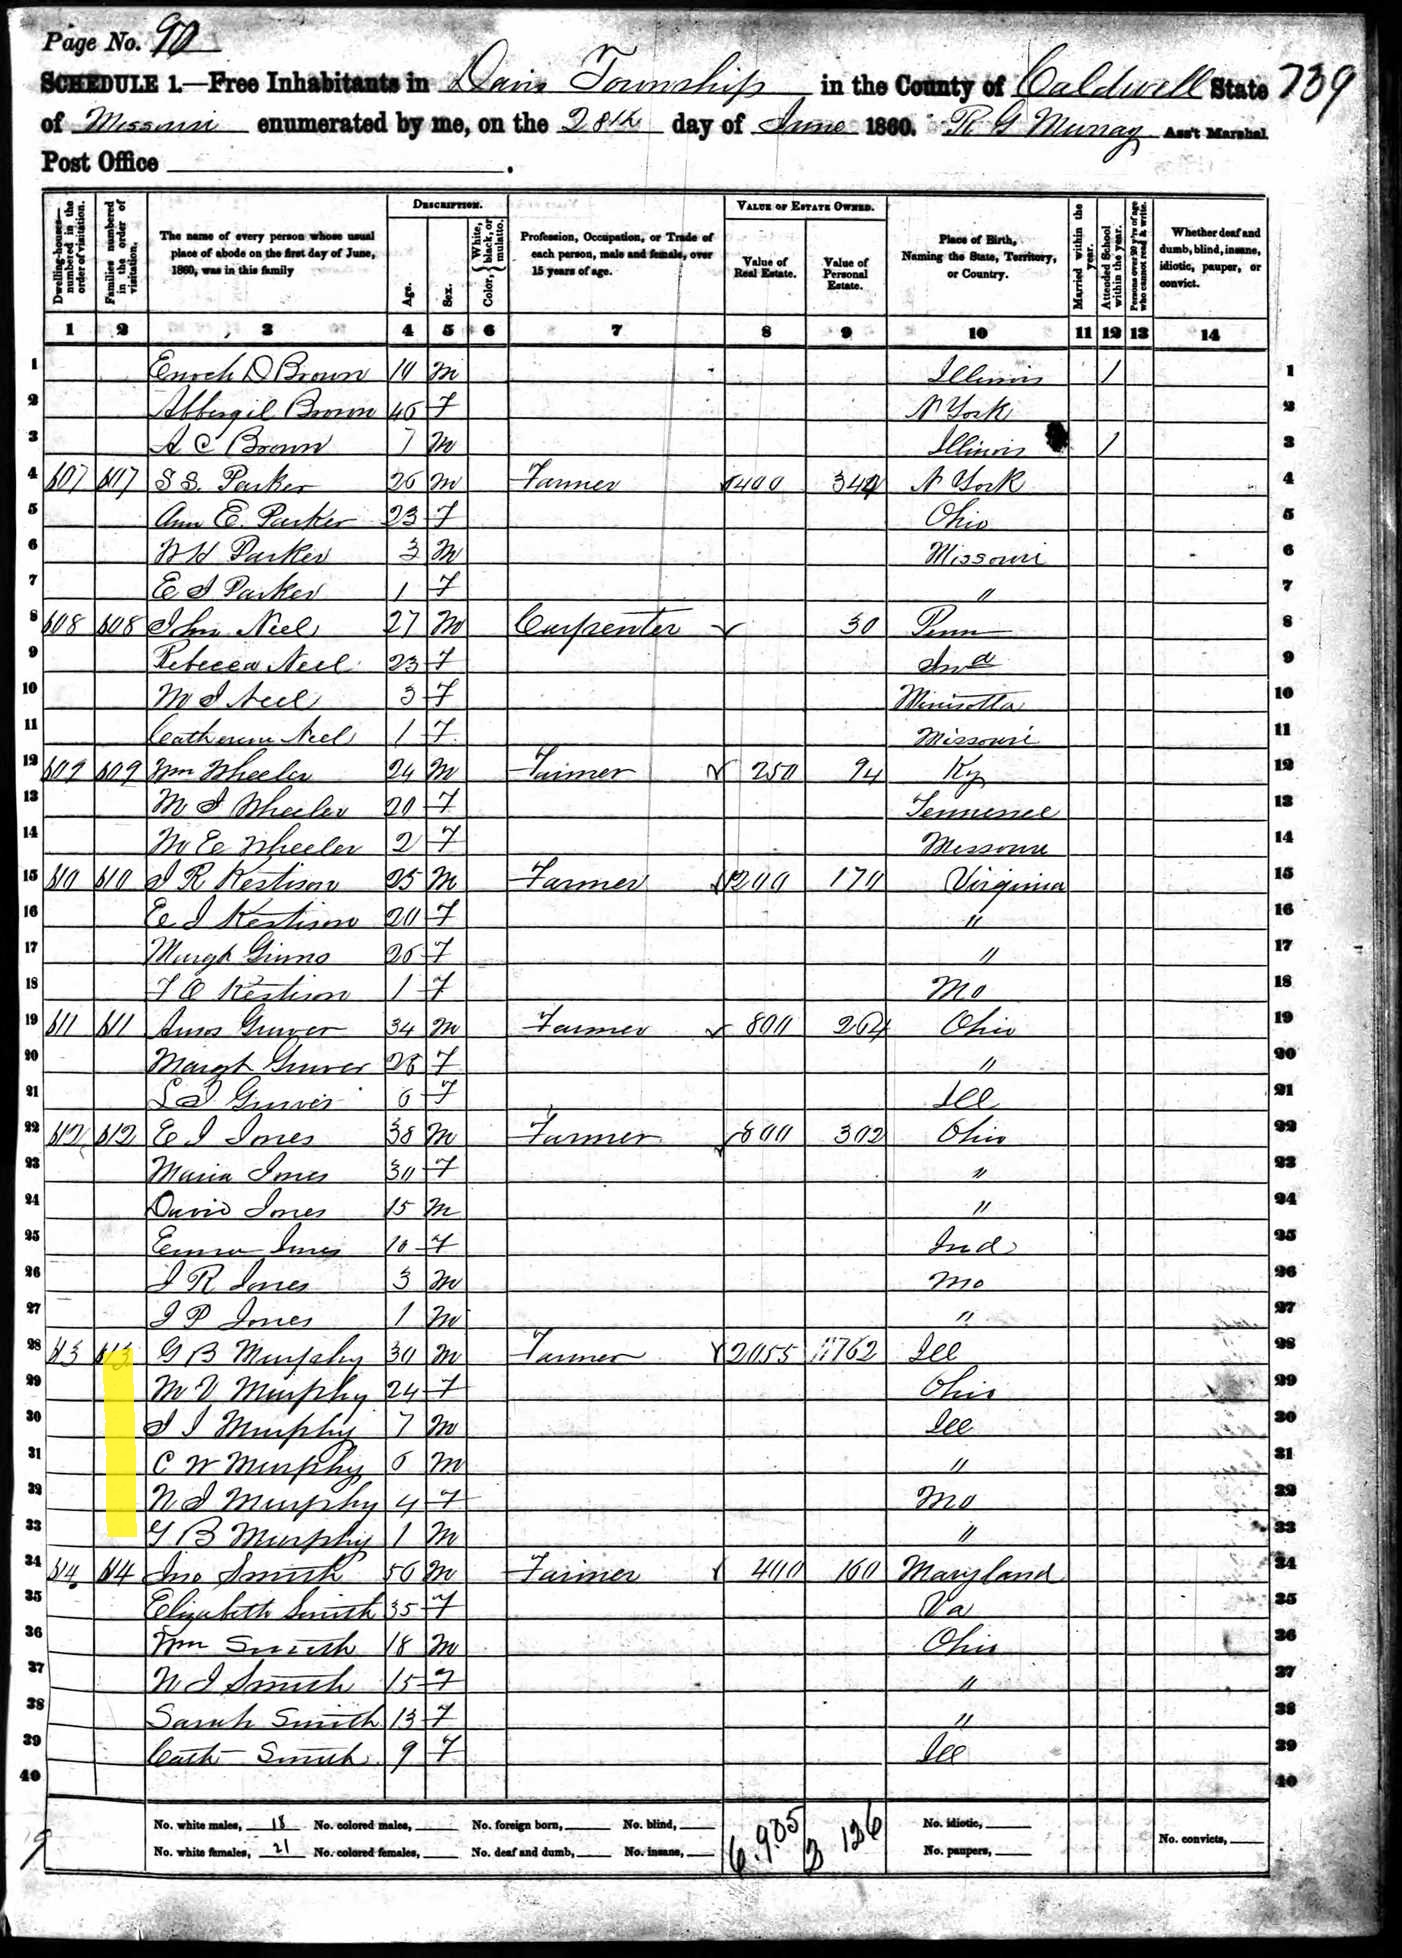 Page No. 90
SCHEDULE 1.—Free Inhabitants in Davis Township in the County of Caldwell State 739
of Missouri enumerated by me, on the 28th day of June 1860. R G Murray Ass't Marshal
Post Office .
Dwelling-houses—numbered in the order of visitation.
Families numbered in the order of visitation.
The name of every person whose usual place of abode on the first day of June, 1860, was in this family
DESCRIPTION.
Age.
Sex.
Color, { White, black, or mulatto.
Profession, Occupation, or Trade of each person, male and female, over 15 years of age.
VALUE OF ESTATE OWNED.
Value of Real Estate.
Value of Personal Estate.
Place of Birth, Naming the State, Territory, or Country.
Married within the year.
Attended School within the year.
Persons over 20 y'rs of age who cannot read & write.
Whether deaf and dumb, blind, insane, idiotic, pauper, or convict.
1 2 3 4 5 6 7 8 9 10 11 12 13 14
1 Enoch D Brown M Illinois 1 1
2 Abbergil Brown 46 F N York 2
3 A C Brown 7 M Illinois 1 3
4 607 607 S S. Parker 26 M Farmer 400 N York 4
5 Ann E. Parker 23 F Ohio 5
6 W H Parker 3 M Missouri 6
7 E I Parker 1 F " 7
8 608 608 John Neel 27 M Carpenter 30 Penn 8
9 Rebecca Neel 23 F Ind 9
10 M I Neel 3 F Minisotta 10
11 Catherine Neel 1 F Missouri 11
12 609 609 Wm Wheeler 24 M Farmer 250 94 Ky 12
13 M I Wheeler 20 F Tennessee 13
14 M E Wheeler 2 F Missouri 14
15 610 610 I R Kestison 25 M Farmer 1200 170 Virginia 15
16 E I Kestison 20 F " 16
17 Margt 26 F " 17
18 Kestison 1 F Mo 18
19 611 611 Amos Gruver 34 M Farmer 800 264 Ohio 19
20 Margt Gruver 28 F " 20
21 L I Gruver 6 F Ill 21
22 612 612 E I Jones 38 M Farmer 800 302 Ohio 22
23 Maria Jones 30 F " 23
24 David Jones 15 M " 24
25 Emma Jones 10 F Ind 25
26 I R Jones 3 M Mo 26
27 I P Jones 1 M " 27
28 613 613 G B Murphy 30 M Farmer 2055 Ill 28
29 M V Murphy 24 F Ohio 29
30 I I Murphy 7 M Ill 30
31 C W Murphy 6 M " 31
32 N I Murphy 4 F Mo 32
33 G B Murphy 1 M " 33
34 614 614 Jno Smith 56 M Farmer 400 160 Maryland 34
35 Elizabeth Smith 35 F Va 35
36 Wm Smith 18 M Ohio 36
37 N I Smith 15 F " 37
38 Sarah Smith 13 F " 38
39 Cath Smith 9 F Ill 39
40 40
No. white males, 18 No. colored males, No. foreign born, No. blind, 6.905 3 126 No. idiotic,
No. white females, 21 No. colored females, No. deaf and dumb, No. insane, No. paupers, No. convicts,